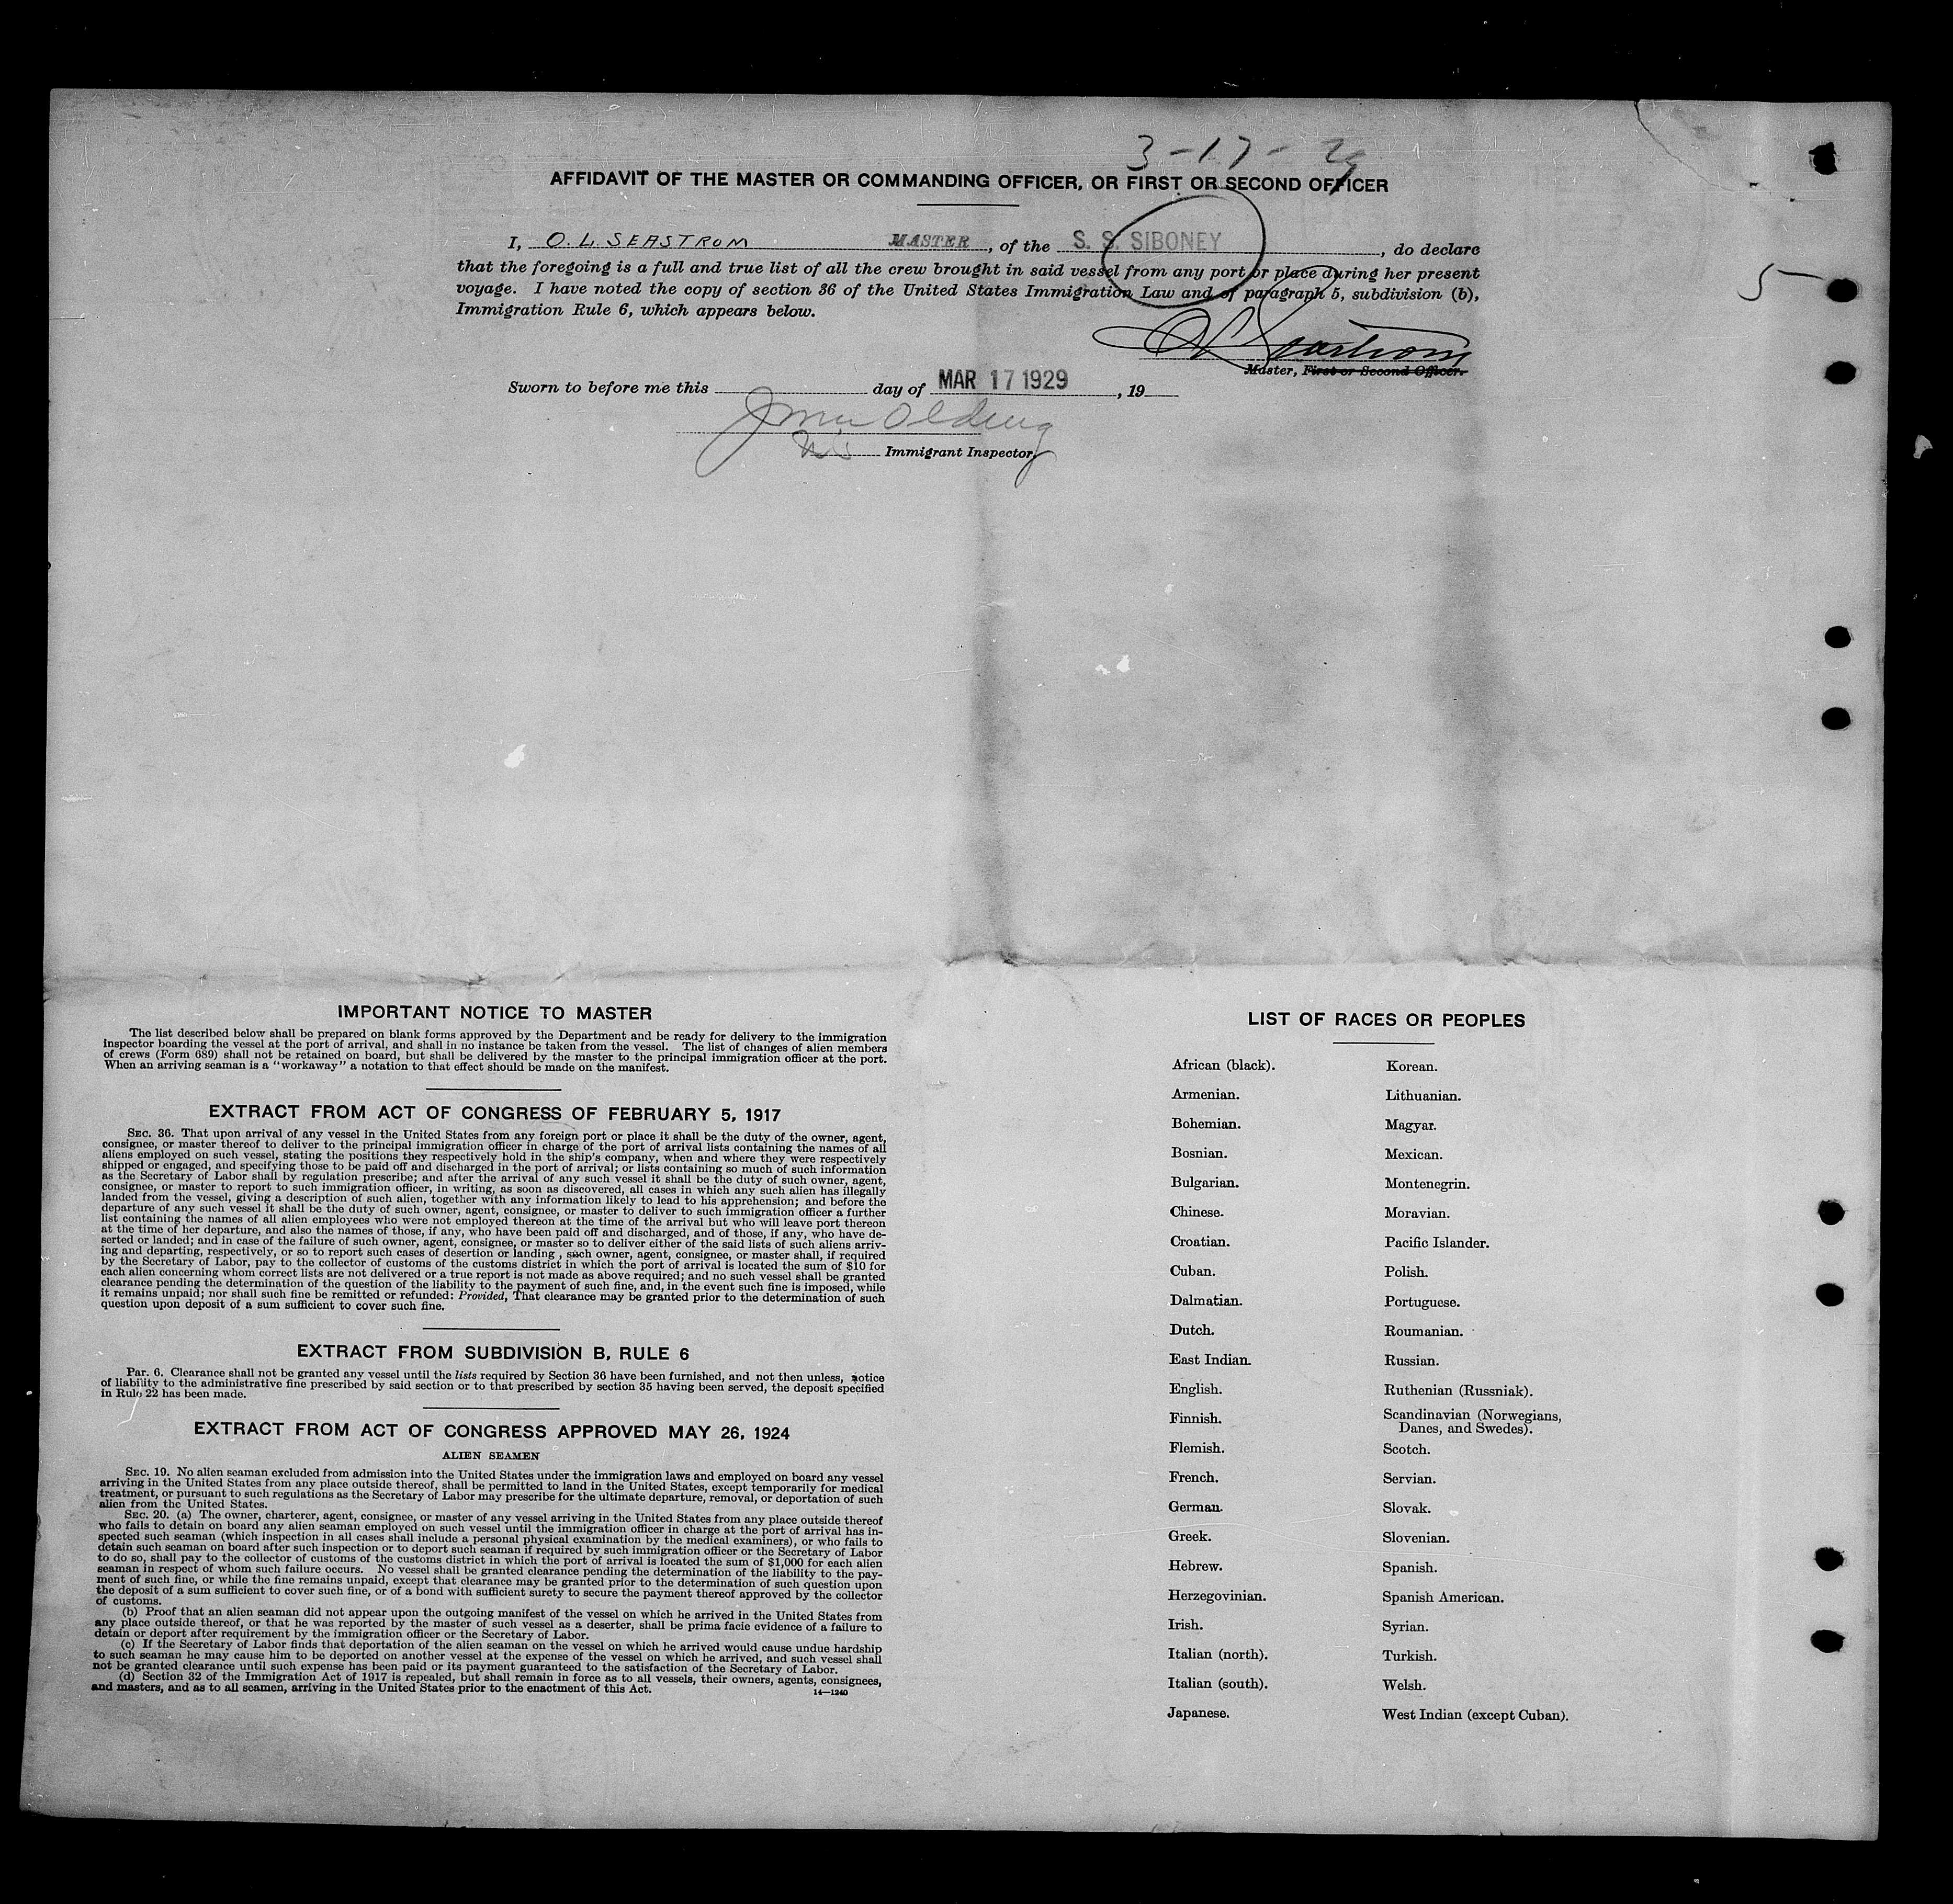 3-17-29
AFFIDAVIT OF THE MASTER OR COMMANDING OFFICER, OR FIRST OR SECOND OFFICER
I, O. L. SEASTROM MASTER, of the S. S. SIBONEY, do declare
that the foregoing is a full and true list of all the crew brought in said vessel from any port or place during her present
voyage. I have noted the copy of section 36 of the United States Immigration Law and of paragraph 5, subdivision (b),
Immigration Rule 6, which appears below.
5
O L Seastrom
Master, First or Second Officer.
Sworn to before me this day of MAR 17 1929, 19
Olding
Immigrant Inspector.
IMPORTANT NOTICE TO MASTER
The list described below shall be prepared on blank forms approved by the Department and be ready for delivery to the immigration
inspector boarding the vessel at the port of arrival, and shall in no instance be taken from the vessel. The list of changes of alien members
of crews (Form 689) shall not be retained on board, but shall be delivered by the master to the principal immigration officer at the port.
When an arriving seaman is a "workaway" a notation to that effect should be made on the manifest.
EXTRACT FROM ACT OF CONGRESS OF FEBRUARY 5, 1917
SEC. 36. That upon arrival of any vessel in the United States from any foreign port or place it shall be the duty of the owner, agent,
consignee, or master thereof to deliver to the principal immigration officer in charge of the port of arrival lists containing the names of all
aliens employed on such vessel, stating the positions they respectively hold in the ship's company, when and where they were respectively
shipped or engaged, and specifying those to be paid off and discharged in the port of arrival; or lists containing so much of such information
as the Secretary of Labor shall by regulation prescribe; and after the arrival of any such vessel it shall be the duty of such owner, agent,
consignee, or master to report to such immigration officer, in writing, as soon as discovered, all cases in which any such alien has illegally
landed from the vessel, giving a description of such alien, together with any information likely to lead to his apprehension; and before the
departure of any such vessel it shall be the duty of such owner, agent, consignee, or master to deliver to such immigration officer a further
list containing the names of all alien employees who were not employed thereon at the time of the arrival but who will leave port thereon
at the time of her departure, and also the names of those, if any, who have been paid off and discharged, and of those, if any, who have de-
serted or landed; and in case of the failure of such owner, agent, consignee, or master so to deliver either of the said lists of such aliens arriv-
ing and departing, respectively, or so to report such cases of desertion or landing , such owner, agent, consignee, or master shall, if required
by the Secretary of Labor, pay to the collector of customs of the customs district in which the port of arrival is located the sum of $10 for
each alien concerning whom correct lists are not delivered or a true report is not made as above required; and no such vessel shall be granted
clearance pending the determination of the question of the liability to the payment of such fine, and, in the event such fine is imposed, while
it remains unpaid; nor shall such fine be remitted or refunded: Provided, That clearance may be granted prior to the determination of such
question upon deposit of a sum sufficient to cover such fine.
EXTRACT FROM SUBDIVISION B, RULE 6
Par. 6. Clearance shall not be granted any vessel until the lists required by Section 36 have been furnished, and not then unless, notice
of liability to the administrative fine prescribed by said section or to that prescribed by section 35 having been served, the deposit specified
in Rule 22 has been made.
EXTRACT FROM ACT OF CONGRESS APPROVED MAY 26, 1924
ALIEN SEAMEN
SEC. 19. No alien seaman excluded from admission into the United States under the immigration laws and employed on board any vessel
arriving in the United States from any place outside thereof, shall be permitted to land in the United States, except temporarily for medical
treatment, or pursuant to such regulations as the Secretary of Labor may prescribe for the ultimate departure, removal, or deportation of such
alien from the United States.
SEC. 20. (a) The owner, charterer, agent, consignee, or master of any vessel arriving in the United States from any place outside thereof
who fails to detain on board any alien seaman employed on such vessel until the immigration officer in charge at the port of arrival has in-
spected such seaman (which inspection in all cases shall include a personal physical examination by the medical examiners), or who fails to
detain such seaman on board after such inspection or to deport such seaman if required by such immigration officer or the Secretary of Labor
to do so, shall pay to the collector of customs of the customs district in which the port of arrival is located the sum of $1,000 for each alien
seaman in respect of whom such failure occurs. No vessel shall be granted clearance pending the determination of the liability to the pay-
ment of such fine, or while the fine remains unpaid, except that clearance may be granted prior to the determination of such question upon
the deposit of a sum sufficient to cover such fine, or of a bond with sufficient surety to secure the payment thereof approved by the collector
of customs.
(b) Proof that an alien seaman did not appear upon the outgoing manifest of the vessel on which he arrived in the United States from
any place outside thereof, or that he was reported by the master of such vessel as a deserter, shall be prima facie evidence of a failure to
detain or deport after requirement by the immigration officer or the Secretary of Labor.
(c) If the Secretary of Labor finds that deportation of the alien seaman on the vessel on which he arrived would cause undue hardship
to such seaman he may cause him to be deported on another vessel at the expense of the vessel on which he arrived, and such vessel shall
not be granted clearance until such expense has been paid or its payment guaranteed to the satisfaction of the Secretary of Labor.
(d) Section 32 of the Immigration Act of 1917 is repealed, but shall remain in force as to all vessels, their owners, agents, consignees,
and masters, and as to all seamen, arriving in the United States prior to the enactment of this Act.
14—1240
LIST OF RACES OR PEOPLES
African (black).
Armenian.
Bohemian.
Bosnian.
Bulgarian.
Chinese.
Croatian.
Cuban.
Dalmatian.
Dutch.
East Indian.
English.
Finnish.
Flemish.
French.
German.
Greek.
Hebrew.
Herzegovinian.
Irish.
Italian (north).
Italian (south).
Japanese.
Korean.
Lithuanian.
Magyar.
Mexican.
Montenegrin.
Moravian.
Pacific Islander.
Polish.
Portuguese.
Roumanian.
Russian.
Ruthenian (Russniak).
Scandinavian (Norwegians,
Danes, and Swedes).
Scotch.
Servian.
Slovak.
Slovenian.
Spanish.
Spanish American.
Syrian.
Turkish.
Welsh.
West Indian (except Cuban).